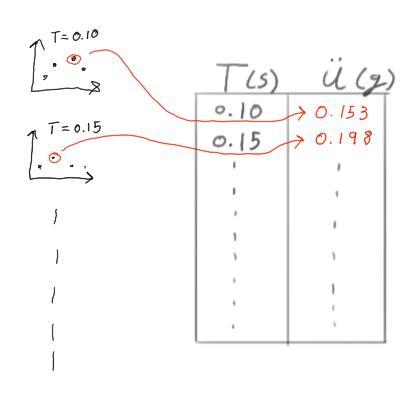 T=0.10
T=0.15
T(s) Ü(g)
0.10 0.153
0.15 0.198